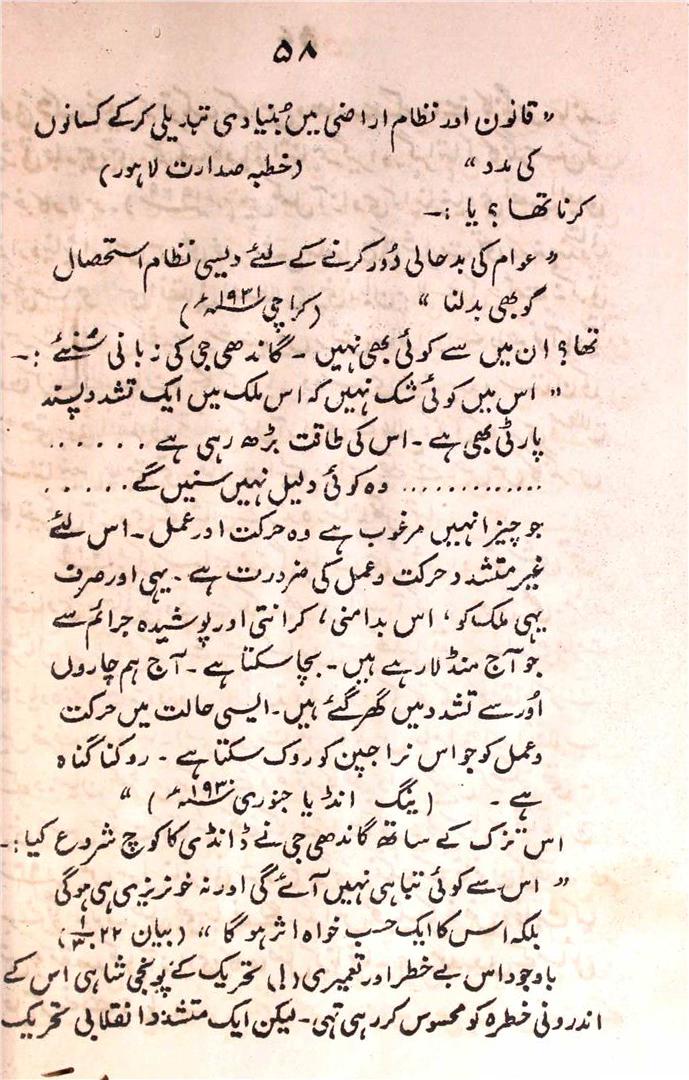 ۵۸
" قانون اور نظام اراضی میں بُنیادی تبدیلی کرکے کسانوں
کی مدد " (خطبہ صدارت لاہور)
کرنا تھا ؟ یا :۔
" عوام کی بدحالی دُور کرنے کے لئے دیسی نظام استحصال
کو بھی بدلنا " (کراچی ۱۹۳۱ء)
تھا ؟ ان میں سے کوئی بھی نہیں ۔ گاندھی جی کی زبانی سُنئے :۔
" اس میں کوئی شک نہیں کہ اس ملک میں ایک تشدد پسند
پارٹی بھی ہے ۔ اس کی طاقت بڑھ رہی ہے ......
............. وہ کوئی دلیل نہیں سنیں گے .....
جو چیز انہیں مرغوب ہے وہ حرکت اور عمل ۔ اس لئے
غیر متشدد حرکت وعمل کی ضرورت ہے ۔ یہی اور صرف
یہی ملک کو ، اس بدامنی ، کرانتی اور پوشیدہ جرائم سے
جو آج منڈلا رہے ہیں ۔ بچا سکتا ہے ۔ آج ہم چاروں
اُور سے تشدد میں گھر گئے ہیں ۔ ایسی حالت میں حرکت
وعمل کو جو اس نراجپن کو روک سکتا ہے ۔ روکنا گناہ
ہے ۔ (ینگ انڈیا جنوری ۱۹۳۰ء) "
اس تزک کے ساتھ گاندھی جی نے ڈانڈی کا کوچ شروع کیا :۔
" اس سے کوئی تباہی نہیں آئے گی اور نہ خونریزی ہی ہوگی
بلکہ اس کا ایک حسب خواہ اثر ہوگا " (بیان ۲۲)
باوجود اس بے خطر اور تعمیری (!) تحریک کے پونجی شاہی اس کے
اندرونی خطرہ کو محسوس کر رہی تہی ۔ لیکن ایک متشدد انقلابی تحریک